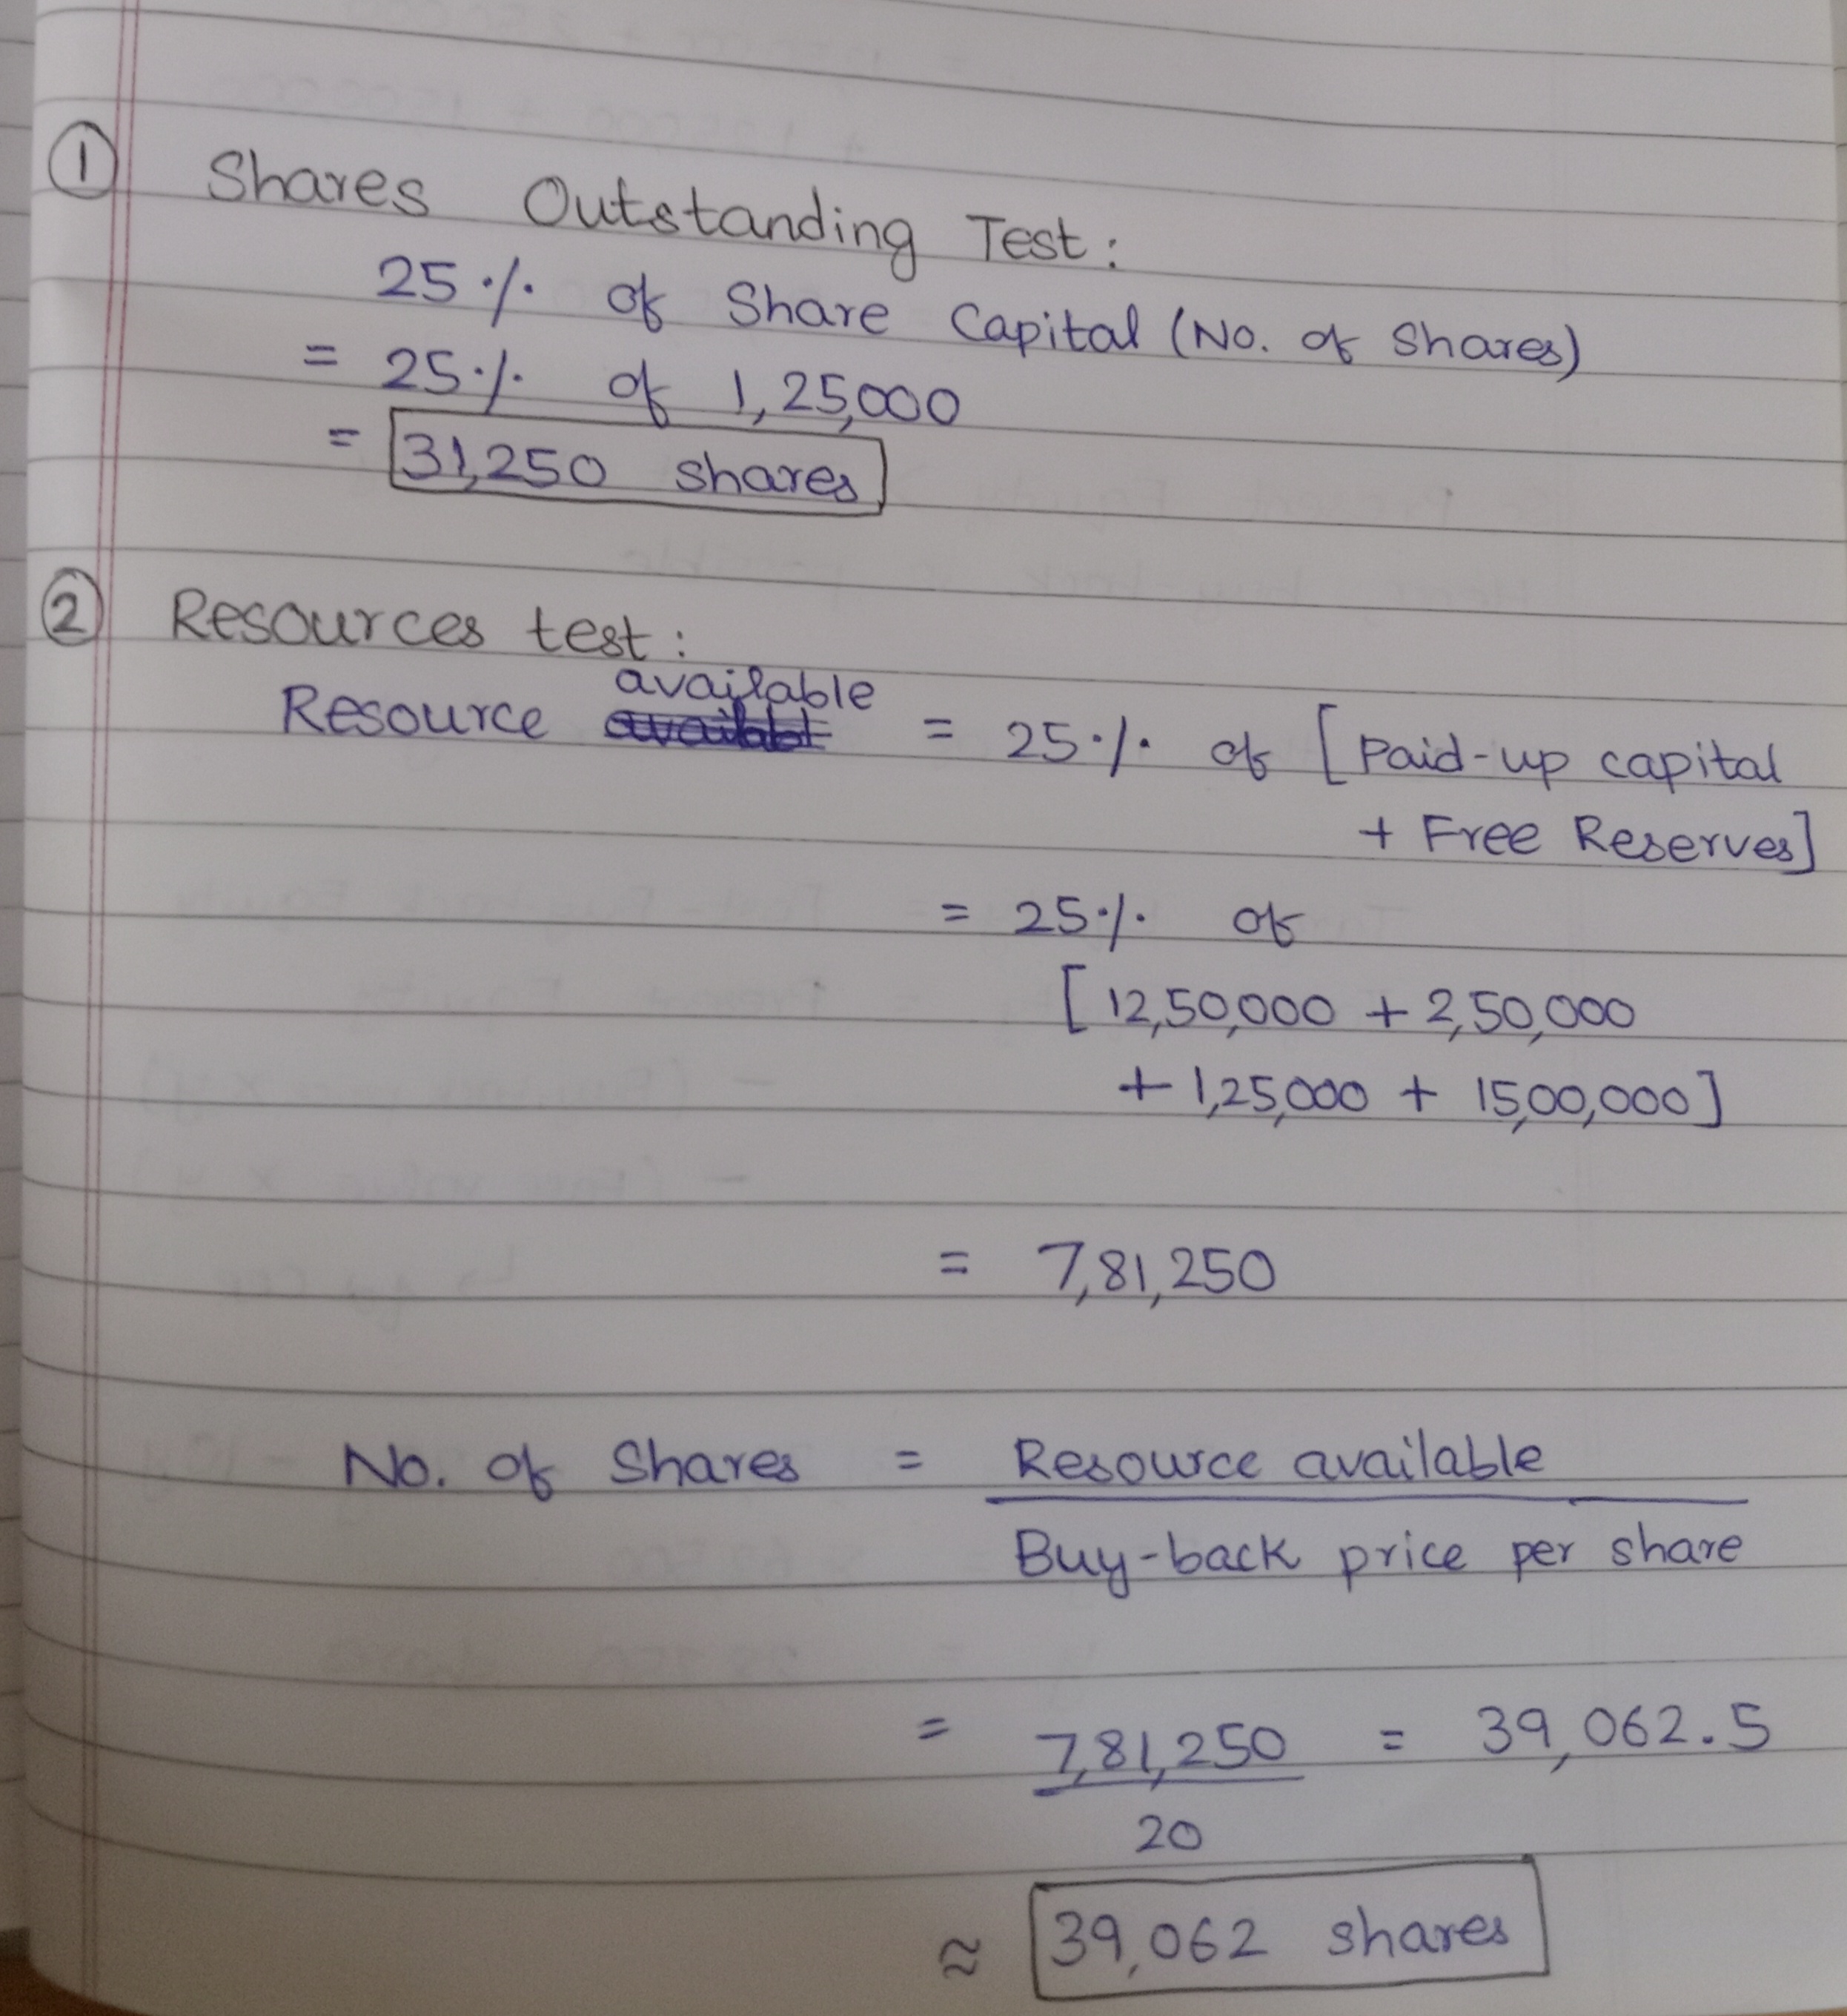 ① Shares Outstanding Test:
25% of Share Capital (No. of Shares)
= 25% of 1,25,000
= 31,250 shares
② Resources test:
available
Resource = 25% of [Paid-up capital
+ Free Reserves]
= 25% of
[12,50,000 + 2,50,000
+ 1,25,000 + 15,00,000]
= 7,81,250
No. of Shares = Resource available
Buy-back price per share
= 7,81,250 = 39,062.5
20
≈ 39,062 shares